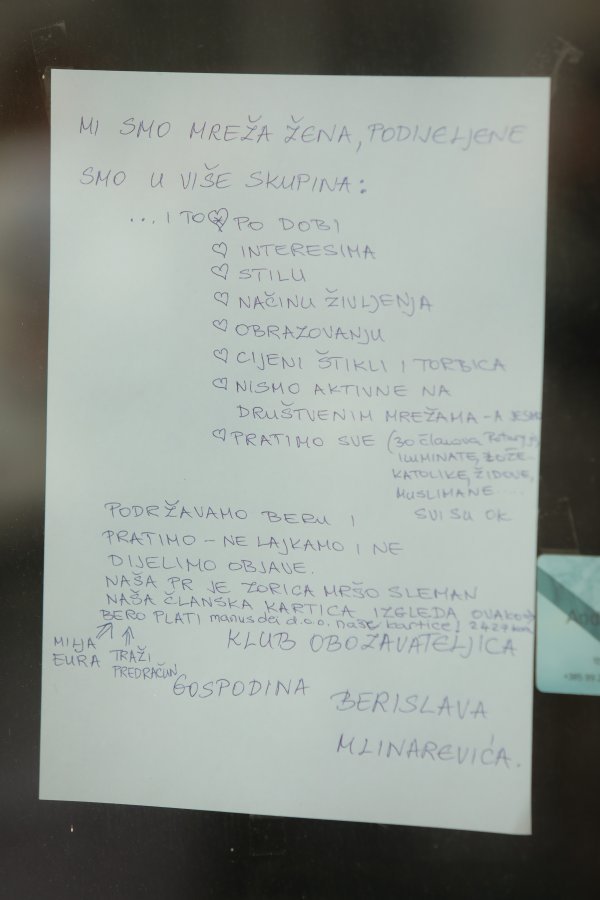 MI SMO MREŽA ŽENA, PODIJELJENE
SMO U VIŠE SKUPINA:
... I TO ♡ PO DOBI
♡ INTERESIMA
♡ STILU
♡ NAČINU ŽIVLJENJA
♡ OBRAZOVANJU
♡ CIJENI ŠTIKLI I TORBICA
♡ NISMO AKTIVNE NA
DRUŠTVENIM MREŽAMA - A JESMO
♡ PRATIMO SVE (30 članova Rotary
ILUMINATE,
KATOLIKE, ŽIDOVE,
MUSLIMANE.....
SVI SU OK
PODRŽAVAMO BERU I
PRATIMO - NE LAJKAMO I NE
DIJELIMO OBJAVE.
NAŠA PR JE ZORICA MRŠO SLEMAN
NAŠA ČLANSKA KARTICA IZGLEDA OVAKO
BERO PLATI manusda d.o.o. naše kartice!
MILJA
EURA
TRAŽI
PREDRAČUN
KLUB OBOŽAVATELJICA
GOSPODINA
BERISLAVA
MLINAREVIĆA.